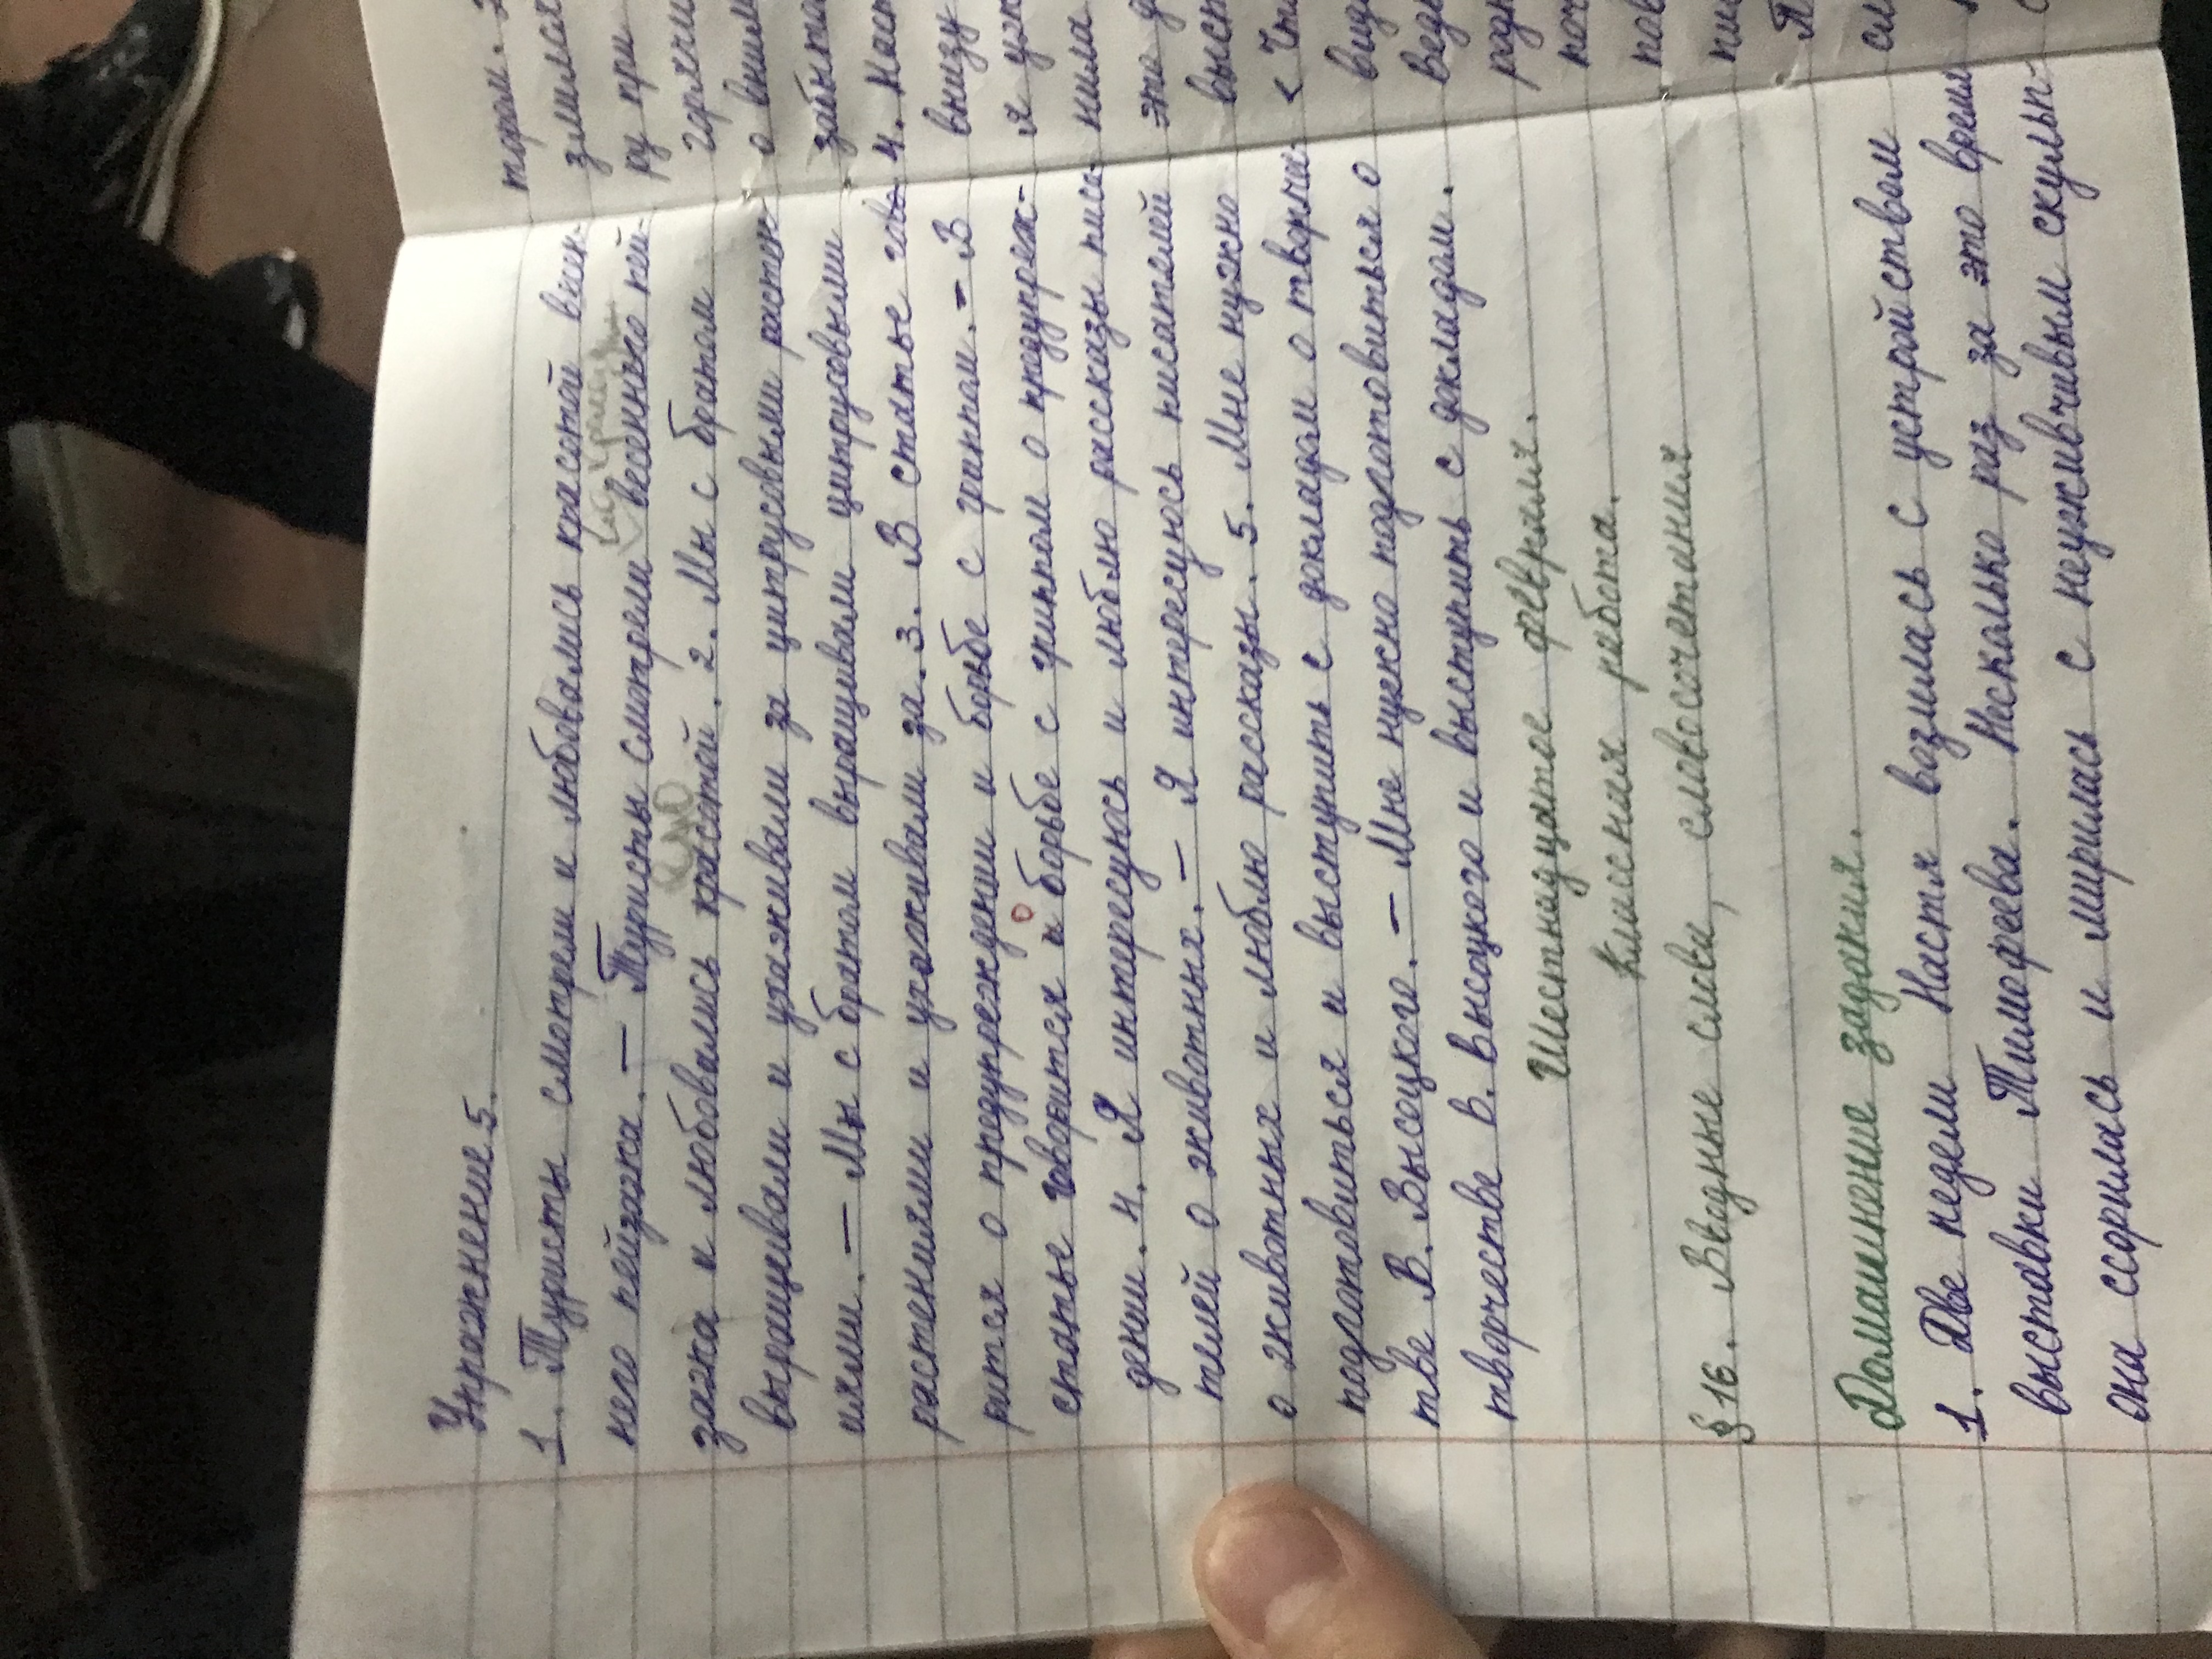 Упражнение 5.
1. Туристы смотрели и любовались красотой весен-
него пейзажа. — Туристы смотрели весеннего пей-
его
зажа и любовались красотой. 2. Мы с братом
выращивали и ухаживали за цитрусовыми растен-
иями. — Мы с братом выращивали цитрусовыми
растениями и ухаживали за. 3. В статье гово
рится о предупреждении и борьбе с гриппом. — В
о
статье говорится и борьбе с гриппом о предупреж-
дении. 4. Я интересуюсь и люблю рассказы писа-
телей о животных. — Я интересуюсь писателей
о животных и люблю рассказы. 5. Мне нужно
подготовиться и выступить с докладом о творчес-
тве В. Высоцкого. — Мне нужно подготовиться о
творчестве В. Высоцкого и выступить с докладом.
Шестнадцатое февраля.
Классная работа.
§ 16. Вводные слова, словосочетания
Домашнение задания.
1. Две недели Настя возилась с устройством
выставки Тимофеева. Несколько раз за это время
она ссорилась и мирилась с неуживчивым скульп-
тором.
злился
ру при
горячи
о вним
забыто
4. Наст
внизу
я уж
нила
это д
выст
« Чт
вид
Ведь
родн
поч
пов
П
сл